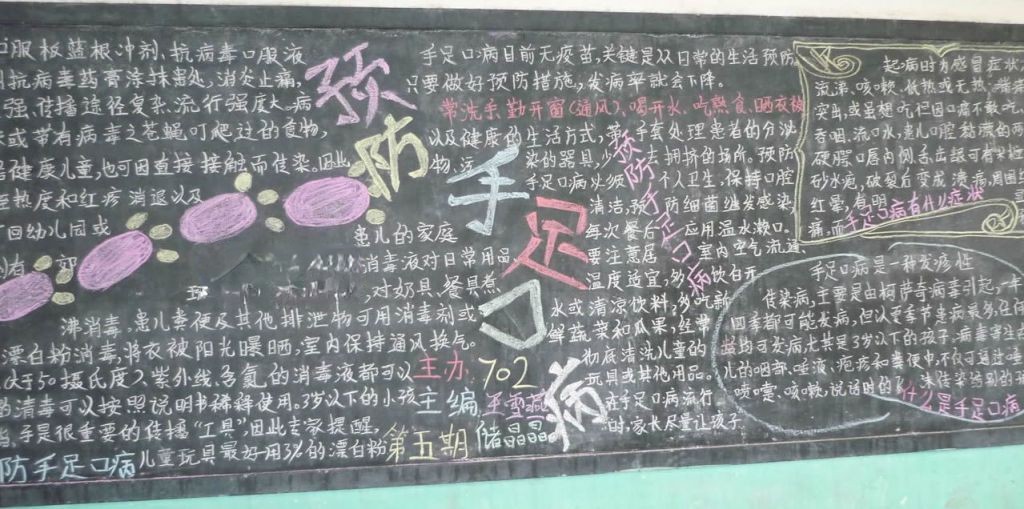 口服板蓝根冲剂、抗病毒口服液
抗病毒药膏涂抹患处,消炎止痛,
强,传播途径复杂、流行强度大。病
或带有病毒之苍蝇叮爬过的食物,
健康儿童,也可因直接接触而传染。因此
热度和红疹消退以及
回幼儿园或
患儿的家庭
消毒液对日常用品,
,对奶具、餐具煮
沸消毒。患儿粪便及其他排泄物可用消毒剂或
漂白粉消毒,将衣被阳光曝晒,室内保持通风换气。
大于50摄氏度)、紫外线、含氯的消毒液都可以
的清毒可以按照说明书稀释使用。3岁以下的小孩
手是很重要的传播“工具”,因此专家提醒,
防手足口病
儿童玩具最好用3%的漂白粉
预防手足口病
主办 702
主编
第五期 储晶晶
手足口病目前无疫苗,关键是从日常的生活预防
只要做好预防措施,发病率就会下降。
常洗手、勤开窗(通风)、喝开水、吃熟食、晒衣被
以及健康的生活方式,带手套处理患者的分泌
物、污染的器具,少去拥挤的场所。预防
手足口病必须个人卫生,保持口腔
清洁,预防细菌继发感染,
每次餐后应用温水漱口。
要注意居室内空气流通,
温度适宜,多饮白开
水或清凉饮料,多吃新
鲜蔬菜和瓜果,经常
彻底清洗儿童的
玩具或其他用品。
在手足口病流行
时,家长尽量让孩子
预防手足口病
起病时为感冒症状
流涕、咳嗽、低热或无热
突出,或虽想吃但因口痛不敢吃
流口水,患儿口腔粘膜的两
硬腭、口唇内侧、舌
砂水疱,破裂后变成溃疡,周围
红晕,有明
痛,而
手足口病有什么症状
手足口病是一种发疹性
传染病,主要是由柯萨奇病毒引起,一年
四季都可能发病,但以夏季患病最多,任何
均可发病,尤其是3岁以下的孩子,病毒寄生在
儿的咽部、唾液、疱疹和粪便中,不仅可通过唾
喷嚏、咳嗽、说话时的飞沫传染给别的孩
什么是手足口病